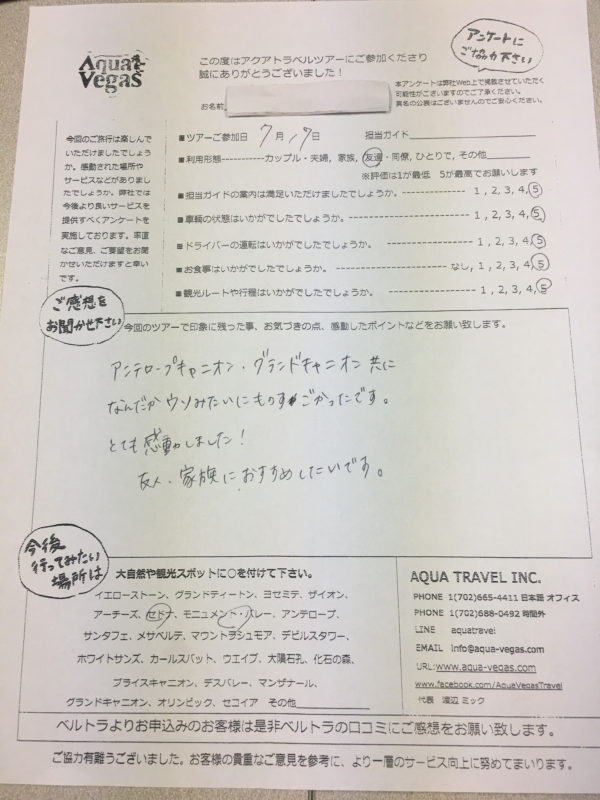 Aqua
Vegas
この度はアクアトラベルツアーにご参加くださり
誠にありがとうございました！
アンケートに
ご協力下さい
本アンケートは弊社Web上で掲載させていただく
可能性がございますのでご了承ください。
実名の公表はございませんのでご安心ください。
お名前
今回のご旅行は楽しんで
いただけましたでしょう
か。感動された場所や
サービスなどがありまし
たでしょうか。弊社では
今後より良いサービスを
提供すべくアンケートを
実施しております。率直
なご意見、ご要望をお聞
かせいただけますと幸い
です。
■ツアーご参加日 7月17日 担当ガイド
■利用形態-----------カップル・夫婦, 家族, 友達・同僚, ひとりで, その他
※評価は1が最低 5が最高でお願いします
■担当ガイドの案内は満足いただけましたでしょうか。 1, 2, 3, 4, 5
■車輌の状態はいかがでしたでしょうか。 1, 2, 3, 4, 5
■ドライバーの運転はいかがでしたでしょうか。 1, 2, 3, 4, 5
■お食事はいかがでしたでしょうか。 なし, 1, 2, 3, 4, 5
■観光ルートや行程はいかがでしたでしょうか。 1, 2, 3, 4, 5
ご感想を
お聞かせ下さい
今回のツアーで印象に残った事、お気づきの点、感動したポイントなどをお願い致します。
アンテロープキャニオン・グランドキャニオン 共に
なんだか ウソみたいにものすごかったです。
とても感動しました！
友人、家族におすすめしたいです。
今後
行ってみたい
場所は
大自然や観光スポットに○を付けて下さい。
イエローストーン、グランドティートン、ヨセミテ、ザイオン、
アーチーズ、セドナ、モニュメント・バレー、アンテロープ、
サンタフェ、メサベルテ、マウントラシュモア、デビルスタワー、
ホワイトサンズ、カールスバット、ウエイブ、大隕石孔、化石の森、
ブライスキャニオン、デスバレー、マンザナール、
グランドキャニオン、オリンピック、セコイア その他
AQUA TRAVEL INC.
PHONE 1(702)665-4411 日本語 オフィス
PHONE 1(702)688-0492 時間外
LINE aquatravel
EMAIL info@aqua-vegas.com
URL:www.aqua-vegas.com
www.facebook.com/AquaVegasTravel
代表 渡辺 ミック
ベルトラよりお申込みのお客様は是非ベルトラの口コミにご感想をお願い致します。
ご協力有難うございました。お客様の貴重なご意見を参考に、より一層のサービス向上に努めてまいります。